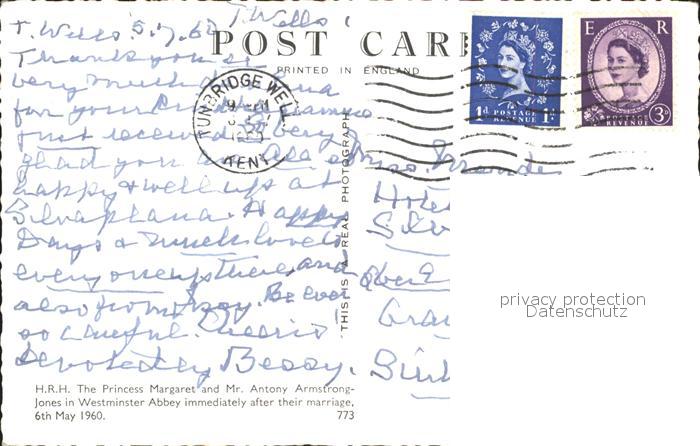 T. Wells 5.7.60 T. Wells
POST CARD
PRINTED IN ENGLAND
Thank you
very much
for your
just received. Very
glad you all
happy & well up at
Silvaplana. Happy
Days & much love to
everyone there, and
also from Roy. Be ever
so careful. Cheerio
Devotedly Bessy.
THIS IS A REAL PHOTOGRAPH
H.R.H. The Princess Margaret and Mr. Antony Armstrong-
Jones in Westminster Abbey immediately after their marriage,
6th May 1960. 773
TUNBRIDGE WELLS
KENT
1d POSTAGE REVENUE 1d
E R
POSTAGE REVENUE 3d
Miss
Hotel
Silv
Ober E
Grau
privacy protection
Datenschutz